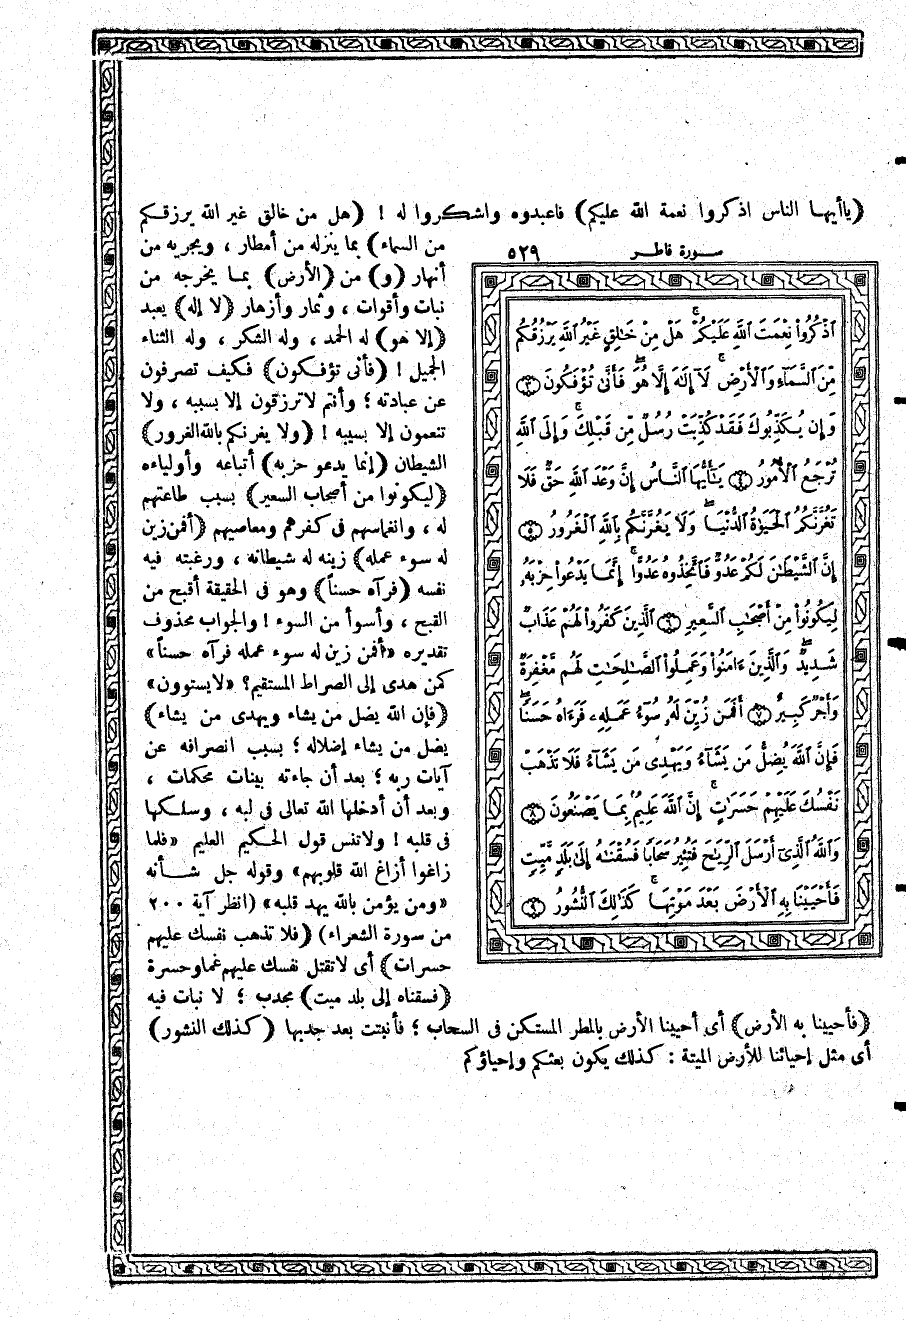 (ياأيها الناس اذكروا نعمة الله عليكم) فاعبدوه واشكروا له ! (هل من خالق غير الله يرزقكم
من السماء) بما ينزله من أمطار ، ويجريه من
أنهار (و) من (الأرض) بما يخرجه من
نبات وأقوات ، وثمار وأزهار (لا إله) يعبد
(إلا هو) له الحمد ، وله الشكر ، وله الثناء
الجميل ! (فأنى تؤفكون) فكيف تصرفون
عن عبادته ؛ وأنتم لا ترزقون إلا بسببه ، ولا
تنعمون إلا بسيبه ! (ولا يغرنكم بالله الغرور)
الشيطان (إنما يدعو حزبه) أتباعه وأولياءه
(ليكونوا من أصحاب السعير) بسبب طاعتهم
له ، وانغماسهم فى كفرهم ومعاصيهم (أفمن زين
له سوء عمله) زينه له شيطانه ، ورغبته فيه
نفسه (فرآه حسناً) وهو فى الحقيقة أقبح من
القبح ، وأسوأ من السوء ! والجواب محذوف
تقديره «أفمن زين له سوء عمله فرآه حسناً»
كمن هدى إلى الصراط المستقيم؟ «لا يستوون»
(فإن الله يضل من يشاء ويهدى من يشاء)
يضل من يشاء إضلاله ؛ بسبب انصرافه عن
آيات ربه ؛ بعد أن جاءته بينات محكمات ،
وبعد أن أدخلها الله تعالى فى لبه ، وسلكها
فى قلبه ! ولا تنس قول الحكيم العليم «فلما
زاغوا أزاغ الله قلوبهم» وقوله جل شأنه
«ومن يؤمن بالله يهد قلبه» (انظر آية ٢٠٠
من سورة الشعراء) (فلا تذهب نفسك عليهم
حسرات) أى لا تقتل نفسك عليهم غما وحسرة
(فسقناه إلى بلد ميت) مجدب ؛ لا نبات فيه
سورة فاطر ٥٢٩
ٱذْكُرُوا۟ نِعْمَتَ ٱللَّهِ عَلَيْكُمْ ۚ هَلْ مِنْ خَـٰلِقٍ غَيْرُ ٱللَّهِ يَرْزُقُكُم
مِّنَ ٱلسَّمَآءِ وَٱلْأَرْضِ ۚ لَآ إِلَـٰهَ إِلَّا هُوَ ۖ فَأَنَّىٰ تُؤْفَكُونَ ﴿٣﴾
وَإِن يُكَذِّبُوكَ فَقَدْ كُذِّبَتْ رُسُلٌ مِّن قَبْلِكَ ۚ وَإِلَى ٱللَّهِ
تُرْجَعُ ٱلْأُمُورُ ﴿٤﴾ يَـٰٓأَيُّهَا ٱلنَّاسُ إِنَّ وَعْدَ ٱللَّهِ حَقٌّ ۖ فَلَا
تَغُرَّنَّكُمُ ٱلْحَيَوٰةُ ٱلدُّنْيَا ۖ وَلَا يَغُرَّنَّكُم بِٱللَّهِ ٱلْغَرُورُ ﴿٥﴾
إِنَّ ٱلشَّيْطَـٰنَ لَكُمْ عَدُوٌّ فَٱتَّخِذُوهُ عَدُوًّا ۚ إِنَّمَا يَدْعُوا۟ حِزْبَهُۥ
لِيَكُونُوا۟ مِنْ أَصْحَـٰبِ ٱلسَّعِيرِ ﴿٦﴾ ٱلَّذِينَ كَفَرُوا۟ لَهُمْ عَذَابٌ
شَدِيدٌ ۖ وَٱلَّذِينَ ءَامَنُوا۟ وَعَمِلُوا۟ ٱلصَّـٰلِحَـٰتِ لَهُم مَّغْفِرَةٌ
وَأَجْرٌ كَبِيرٌ ﴿٧﴾ أَفَمَن زُيِّنَ لَهُۥ سُوٓءُ عَمَلِهِۦ فَرَءَاهُ حَسَنًا ۖ
فَإِنَّ ٱللَّهَ يُضِلُّ مَن يَشَآءُ وَيَهْدِى مَن يَشَآءُ ۖ فَلَا تَذْهَبْ
نَفْسُكَ عَلَيْهِمْ حَسَرَٰتٍ ۚ إِنَّ ٱللَّهَ عَلِيمٌۢ بِمَا يَصْنَعُونَ ﴿٨﴾
وَٱللَّهُ ٱلَّذِىٓ أَرْسَلَ ٱلرِّيَـٰحَ فَتُثِيرُ سَحَابًا فَسُقْنَـٰهُ إِلَىٰ بَلَدٍ مَّيِّتٍ
فَأَحْيَيْنَا بِهِ ٱلْأَرْضَ بَعْدَ مَوْتِهَا ۚ كَذَٰلِكَ ٱلنُّشُورُ ﴿٩﴾
(فأحيينا به الأرض) أى أحيينا الأرض بالمطر المستكن فى السحاب ؛ فأنبتت بعد جدبها (كذلك النشور)
أى مثل إحيائنا للأرض الميتة : كذلك يكون بعثكم وإحياؤكم